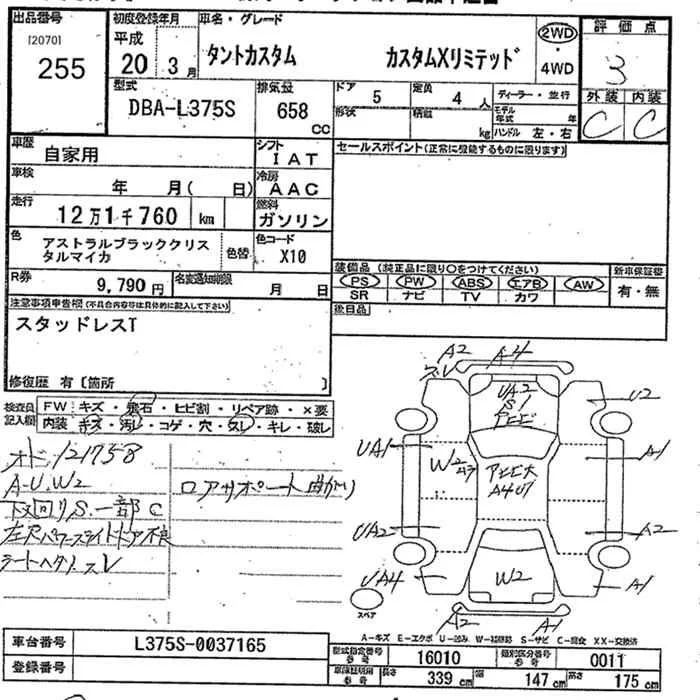 出品番号 初度登録年月 車名・グレード 評価点
[2070] 平成 2WD
255 20年 3月 タントカスタム カスタムXリミテッド ・ 3
4WD
型式 排気量 ドア 定員 ディーラー・並行 外装 内装
DBA-L375S 658 cc 5 4人 モデル年式 年 C C
形状 積載 kg ハンドル 左・右
車歴 シフト セールスポイント(正常に機能するものに限ります)
自家用 IAT
車検 冷房
年 月( 日) AAC
走行 燃料
12万1千760 km ガソリン
色 色替 色コード
アストラルブラッククリス X10
タルマイカ
装備品 (純正品に限り○をつけてください) 新車保証書
R券 9,790円 名変通知期限 月 日 PS PW ABS エアB AW 有・無
SR ナビ TV カワ
注意事項申告欄(不具合内容等は具体的に記入して下さい) 後日品
スタッドレスT
修復歴 有 [箇所 ]
検査員記入欄 FW キズ・飛石・ヒビ割・リペア跡・×要
内装 キズ・汚レ・コゲ・穴・スレ・キレ・破レ
オド121758
A-U.W2 ロアサポート曲がり
下回りS.一部C
左Rパワースライドドア不良
シートヘタリスレ
A2 A4
スレ
UA2
S1
U2
UA1 W2 A1
A2
UA2
UA4 W2 A1
スペア A2 A1
A-キズ E-エクボ U-凹み W-補修跡 S-サビ C-腐食 XX-交換済
車台番号 L375S-0037165
登録番号
型式指定番号 16010 類別区分番号 0011
長さ 339cm 幅 147cm 高さ 175cm